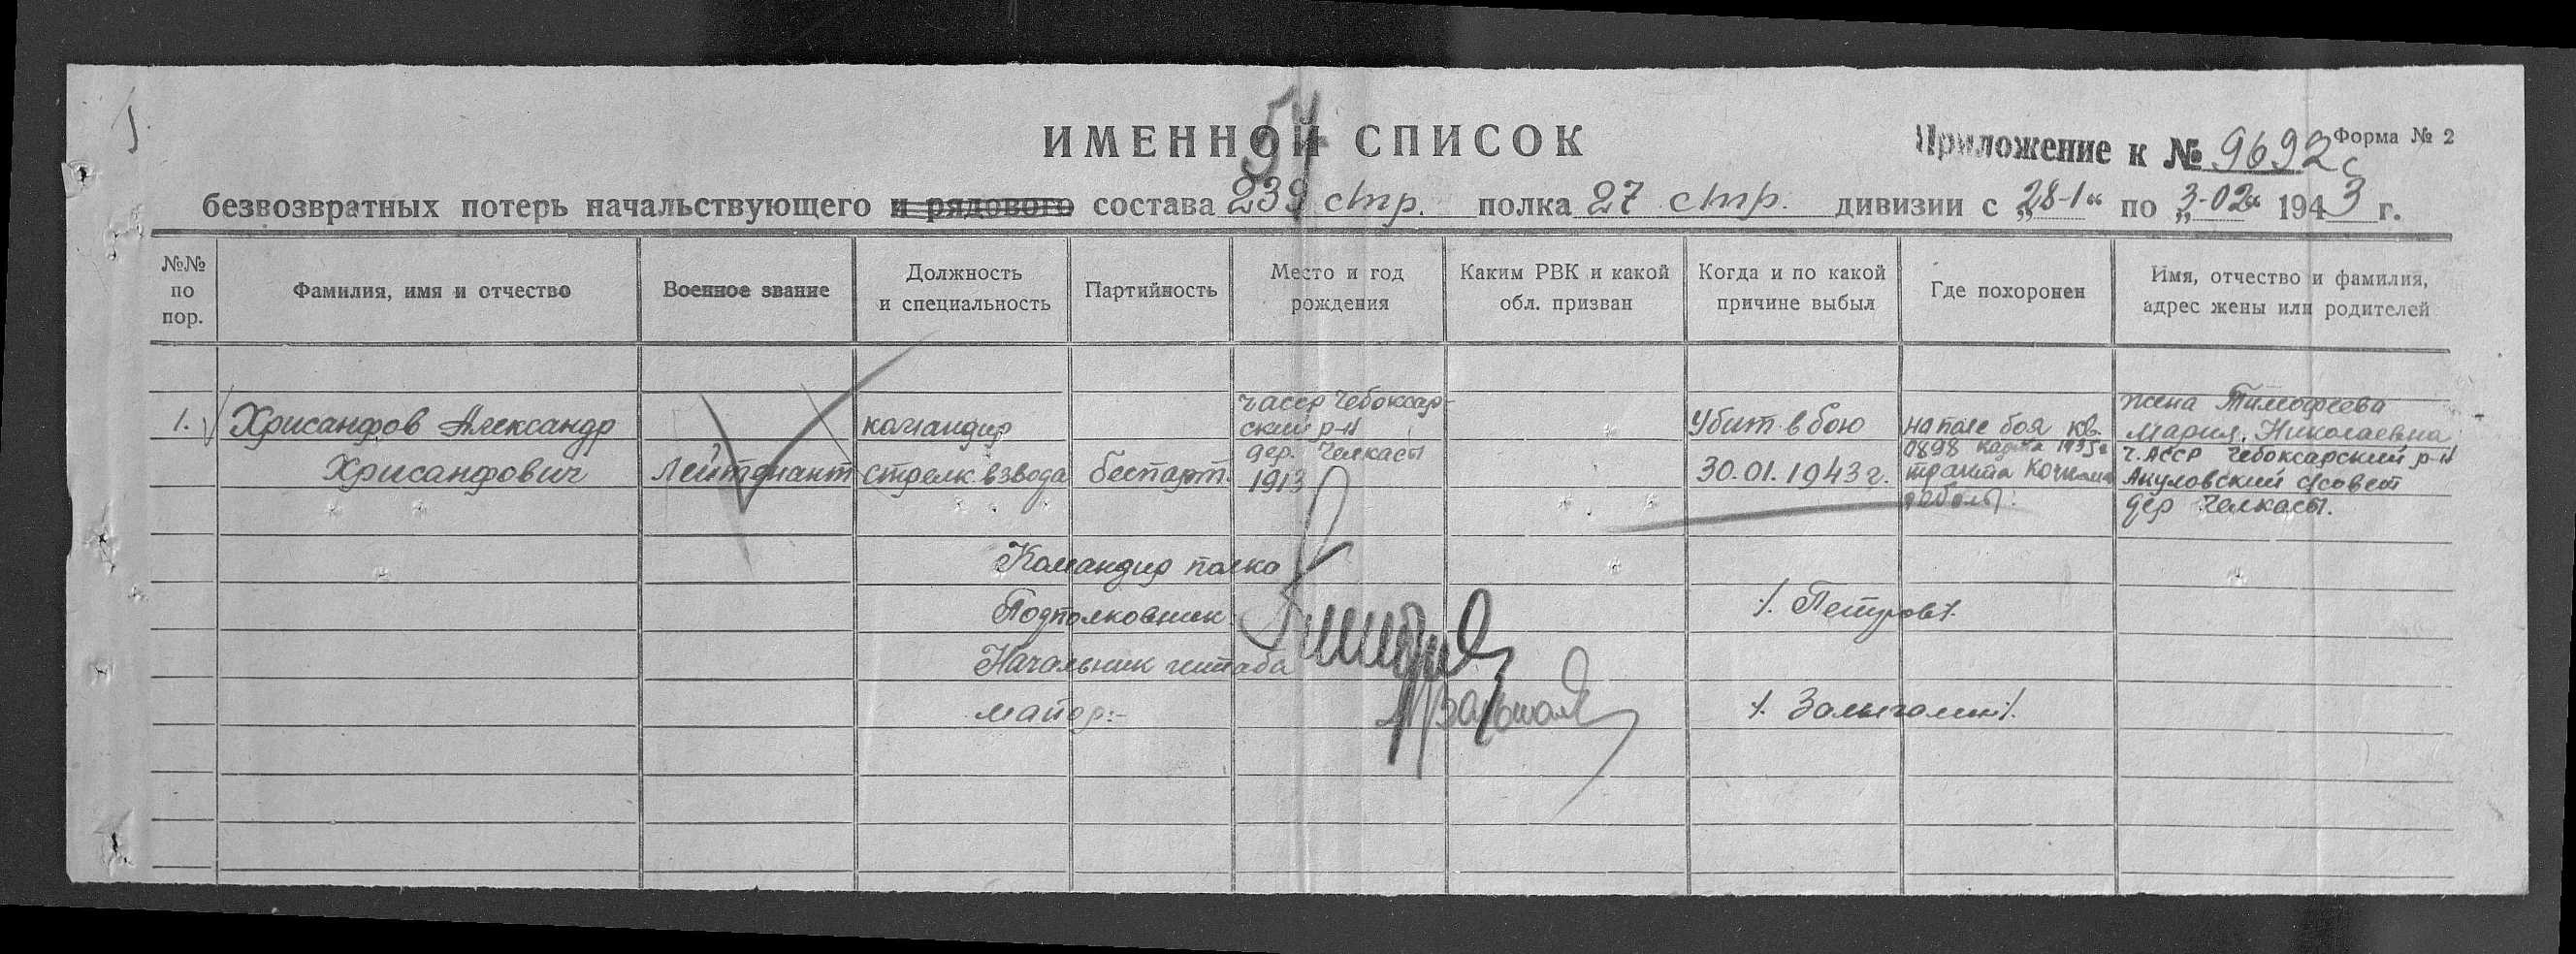 1.
54
ИМЕННОЙ СПИСОК
Приложение к № 9692с
Форма № 2
безвозвратных потерь начальствующего и рядового состава 239 стр. полка 27 стр. дивизии с „28-1“ по „3-02“ 1943 г.
№№ по пор.
Фамилия, имя и отчество
Военное звание
Должность и специальность
Партийность
Место и год рождения
Каким РВК и какой обл. призван
Когда и по какой причине выбыл
Где похоронен
Имя, отчество и фамилия, адрес жены или родителей
1.
Хрисанфов Александр
Хрисанфович
лейтенант
командир
стрелк. взвода
беспарт.
ЧАССР Чебоксар-
ский р-н
дер. Челкасы
1913
Убит в бою
30.01.1943г.
на поле боя кв.
0898 карта 1935г
тракта Кочкома
реболы.
жена Тимофеева
Мария Николаевна
Ч.АССР Чебоксарский р-н
Акуловский с/совет
дер Челкасы.
Командир полка
Подполковник
/. Петров/.
Начальник штаба
майор:-